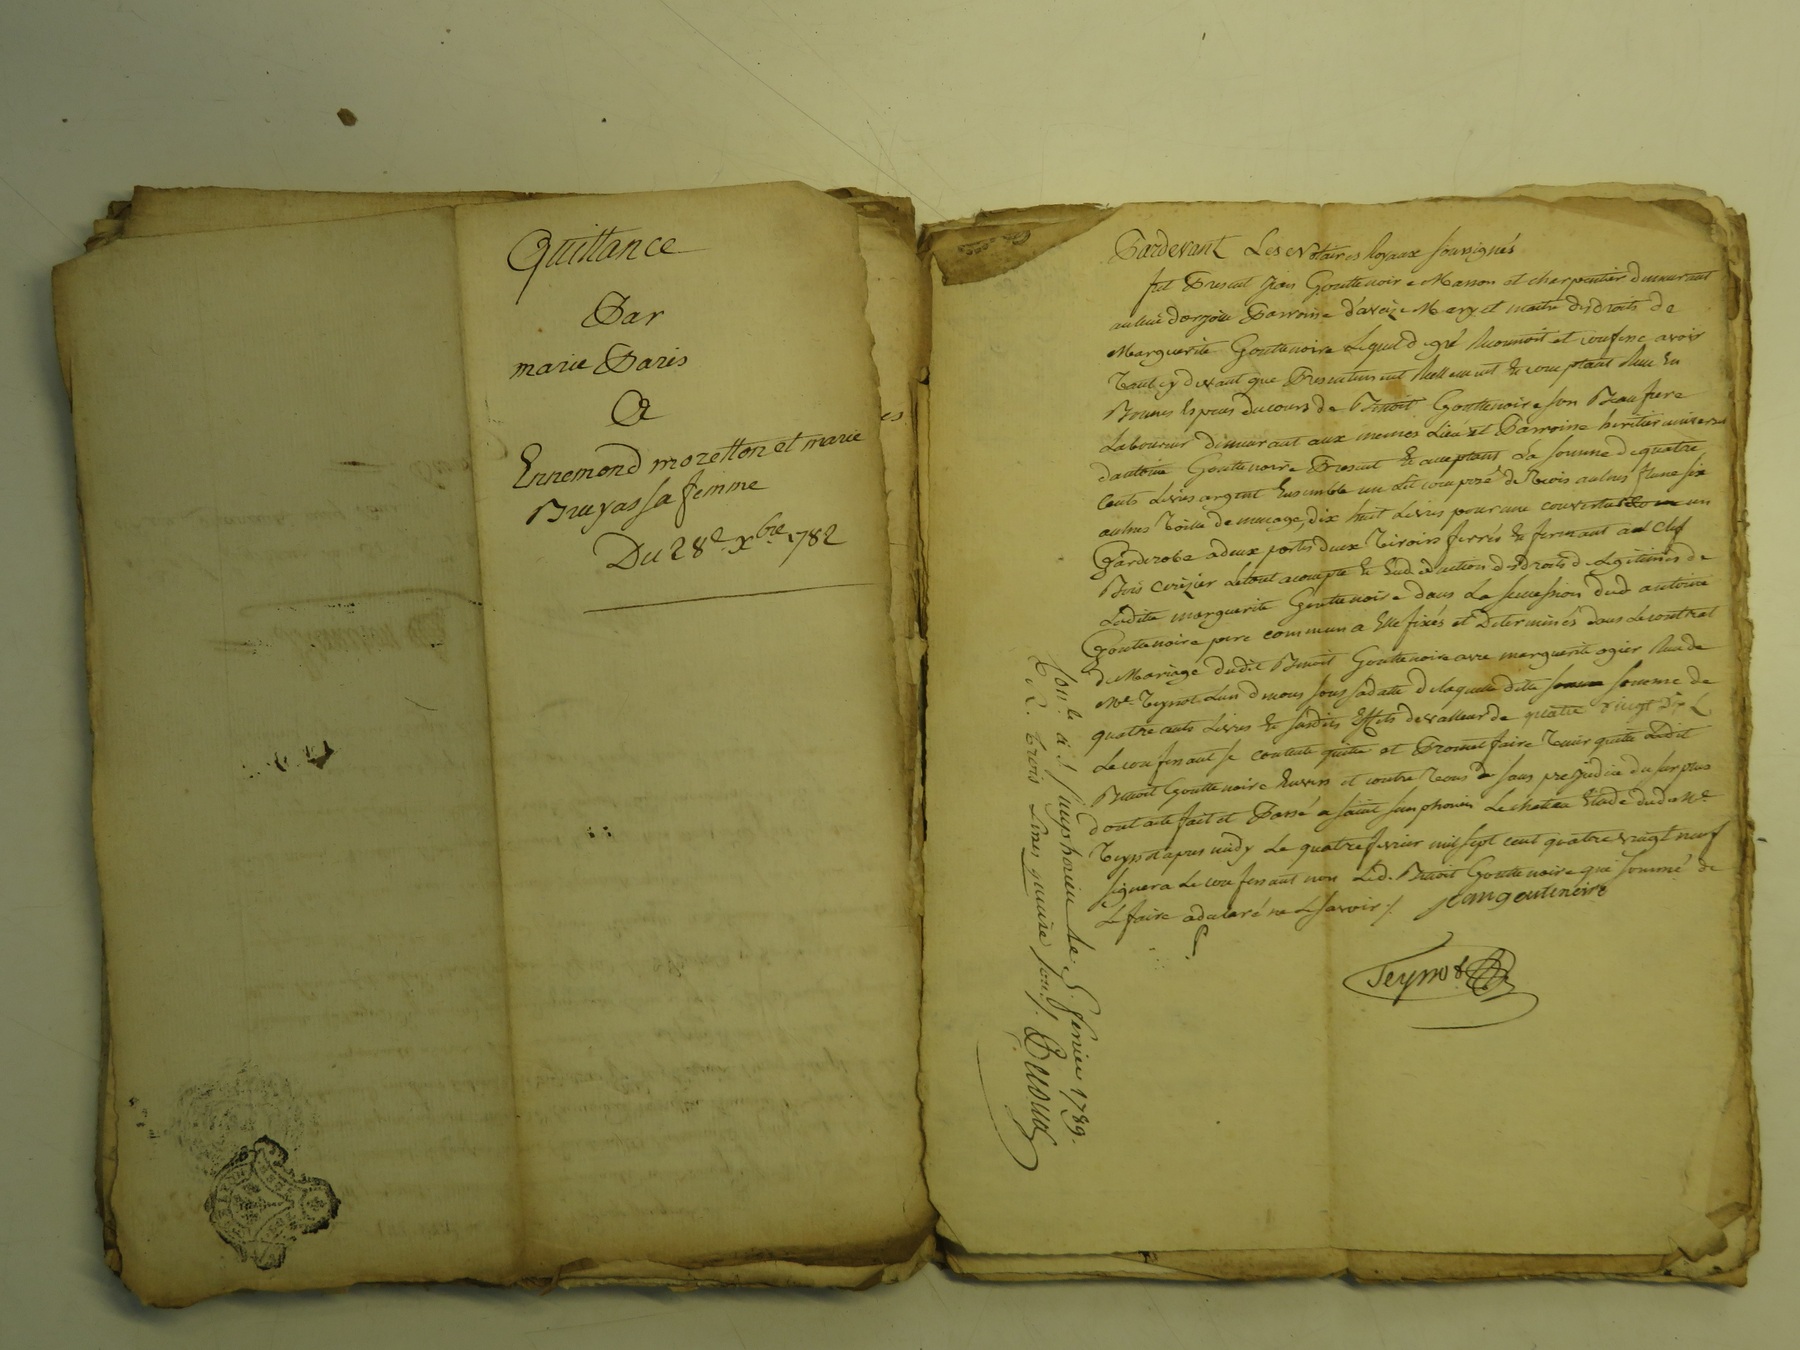 Quittance
Par
marie Paris
A
Ennemond moretton et marie
Bruyas sa femme
Du 28e. xbre. 1782
Pardevant Les Notaires Royaux soussignés
fut Present Jean Gouttenoire Masson et charpentier demeurant
au lieu Parroisse d'aveize Mary et maitre des droits de
Marguerite Gouttenoire Lequel de gré Reconnoit et confesse avoir
tant cy devant que Presentement Reellement et comptant Reçu en
Bonnes Especes du cours de Benoit Gouttenoire son Beau frere
Laboureur demeurant aux memes Lieu et Parroisse heritier univers
d'antoine Gouttenoire Present et acceptant La somme de quatre
cents Livres argent Ensemble un lit composé de trois aulnes six
aulnes toille de menage, dix huit Livres pour une couverte un
Garderobe a deux portes deux tiroirs ferrés et fermant a clef
Bois cerisier Le tout acompte et en deduction des droits de Legitimes de
Ladite marguerite Gouttenoire dans La succession dud antoine
Gouttenoire pere commun a Elle fixés et determinés dans Le contrat
de Mariage dudit Benoit Gouttenoire avec marguerite ogier Reçu de
Me. Teyssot L'un de nous sous sa datte de laquelle dite somme de
quatre cents Livres et susdits Effets de valleur de quatre vingt dix L
Le confessant se contente quitte et Promet faire tenir quitte Ledit
Benoit Gouttenoire Envers et contre tous et sans prejudice du surplus
dont acte fait et Passé a saint simphorien Le chateau Etude dud Me.
Teyssot apres midy Le quatre fevrier mil sept cent quatre vingt neuf
signera Le confessant non Led. Benoit Gouttenoire qui sommé de
Le faire a declaré ne Le savoir /.
Jean goutenoire
Teyssot
Con.le à St. Simphorien le 5. fevrier 1789.
R. trois Livres quinze sous /.